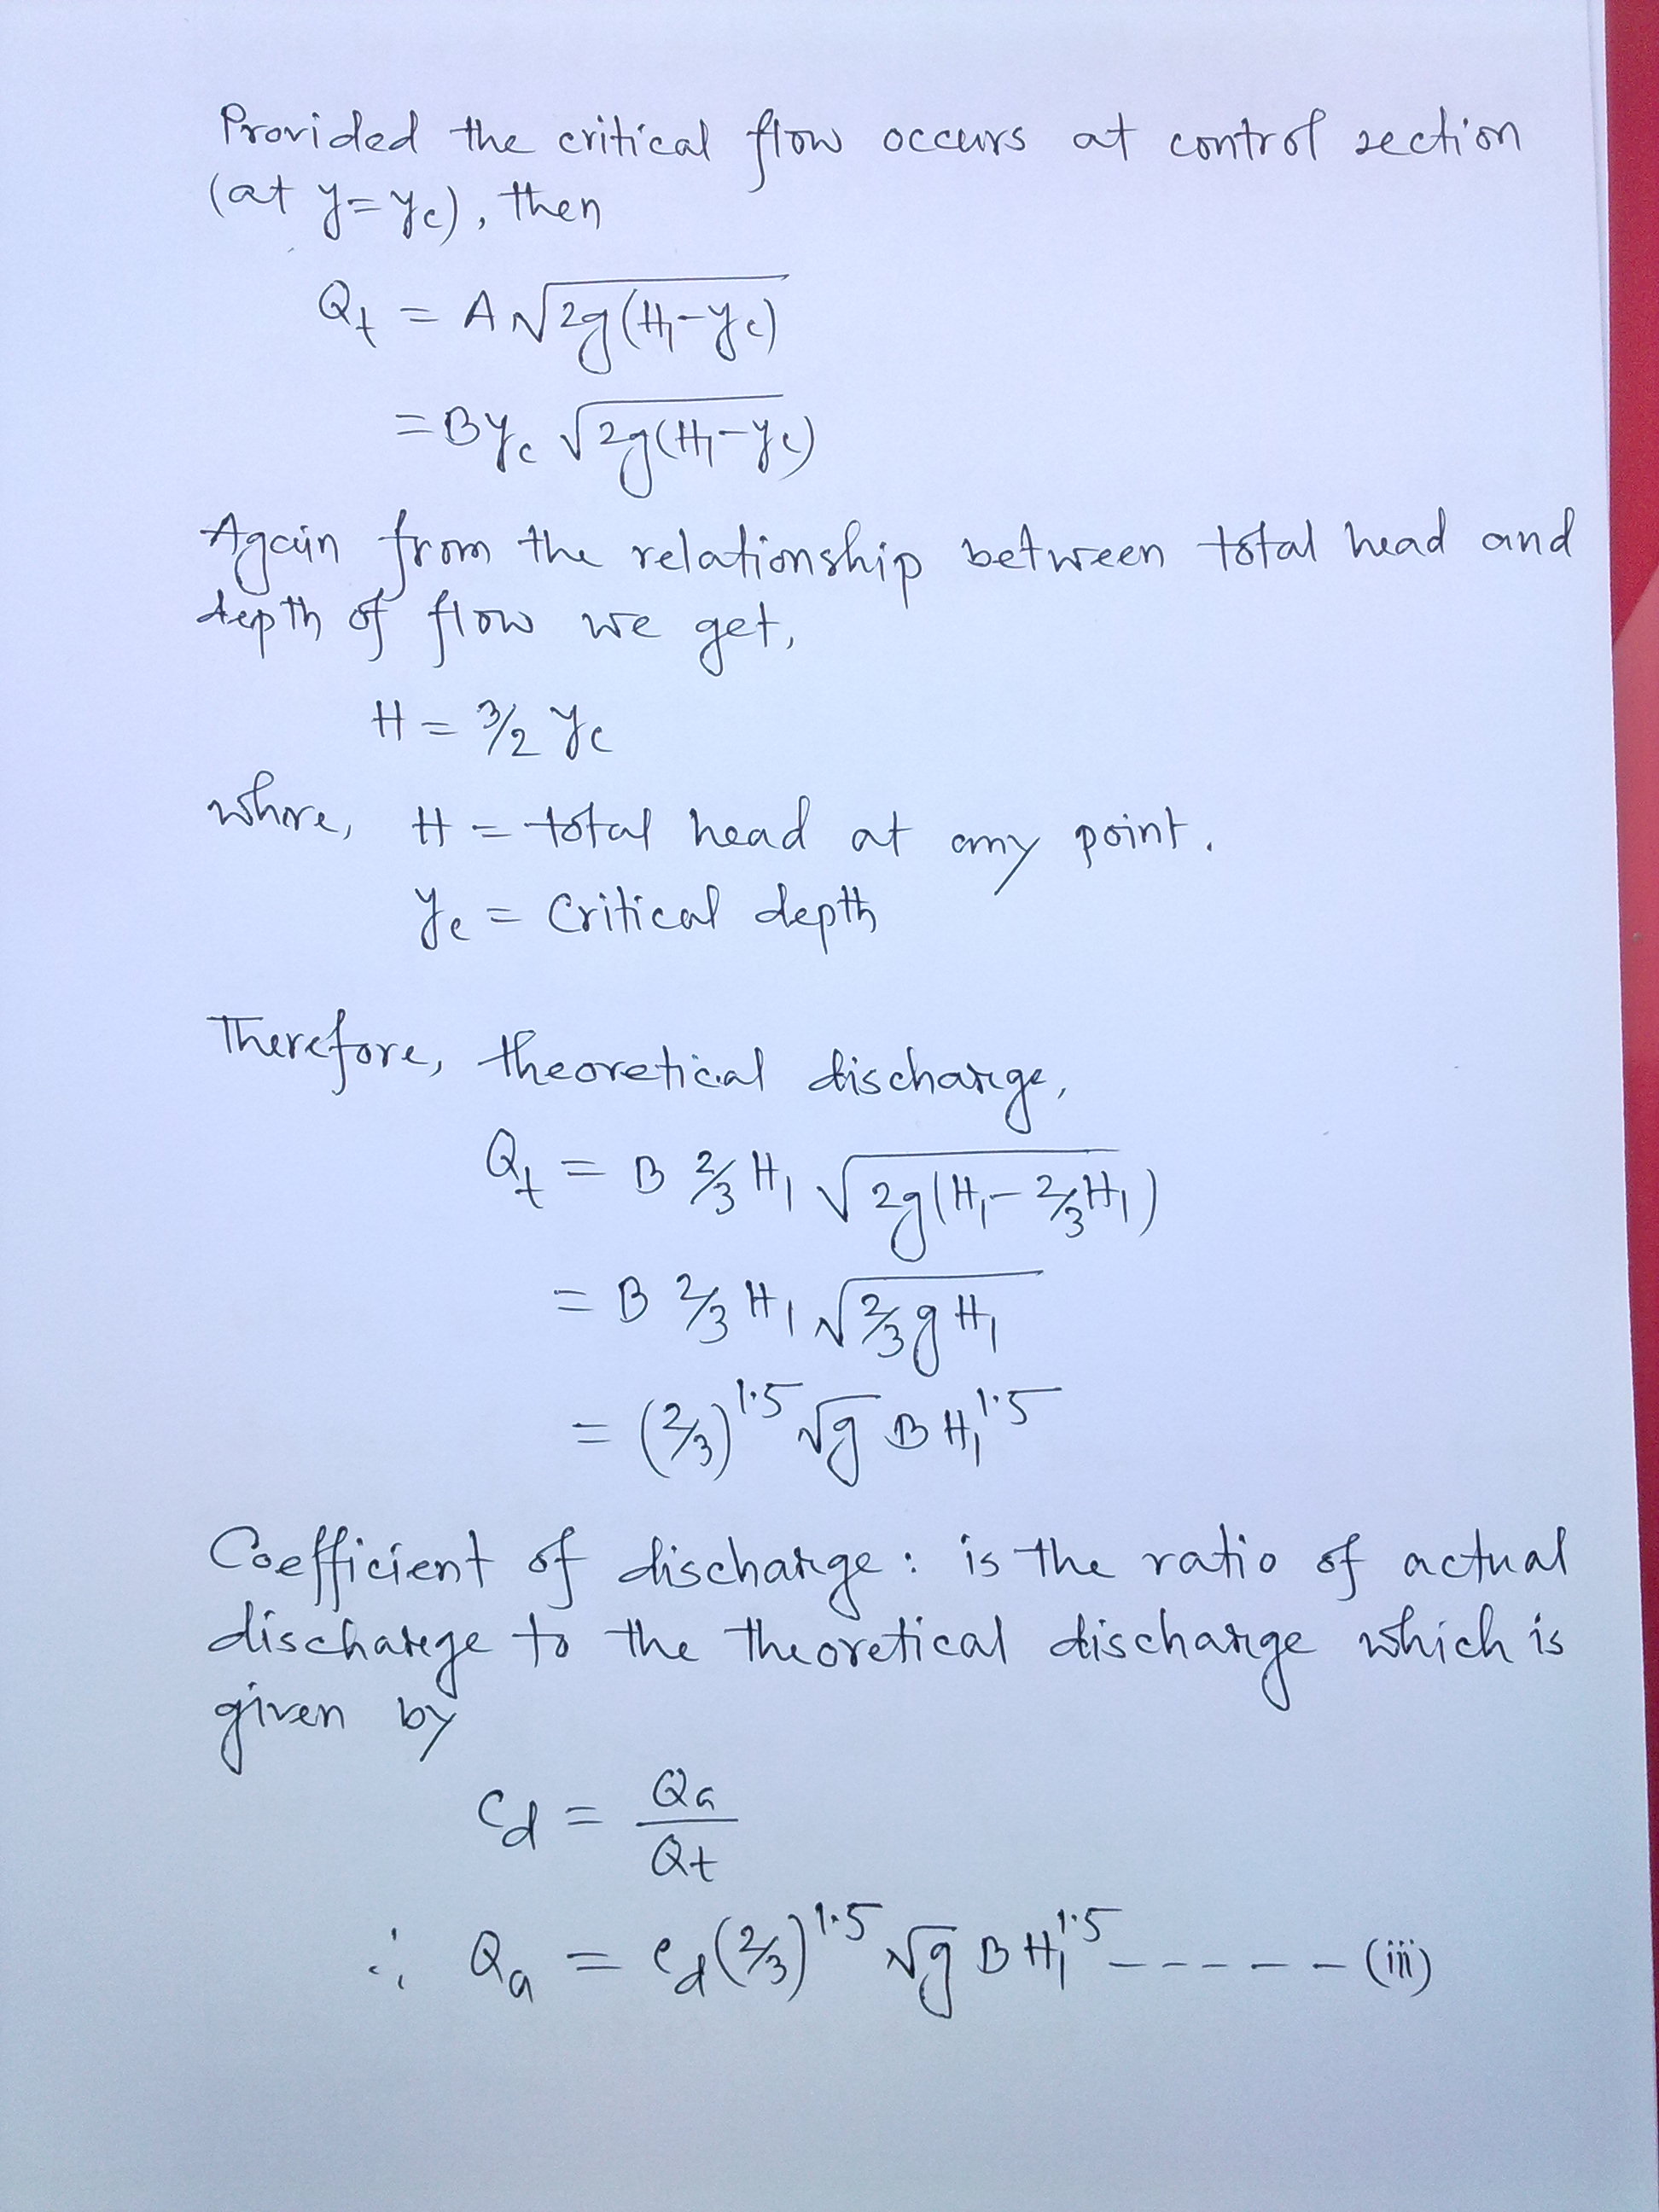 Provided the critical flow occurs at control section
(at y=yc), then
Qt = A√2g(H₁-yc)
= Byc √2g(H₁-yc)
Again from the relationship between total head and
depth of flow we get,
H = 3/2 yc
where, H = total head at any point.
yc = Critical depth
Therefore, theoretical discharge,
Qt = B 2/3 H₁ √2g(H₁-2/3H₁)
= B 2/3 H₁ √2/3 g H₁
= (2/3)^1.5 √g B H₁^1.5
Coefficient of discharge: is the ratio of actual
discharge to the theoretical discharge which is
given by
Cd = Qa/Qt
∴ Qa = Cd(2/3)^1.5 √g B H₁^1.5 ----- (iii)